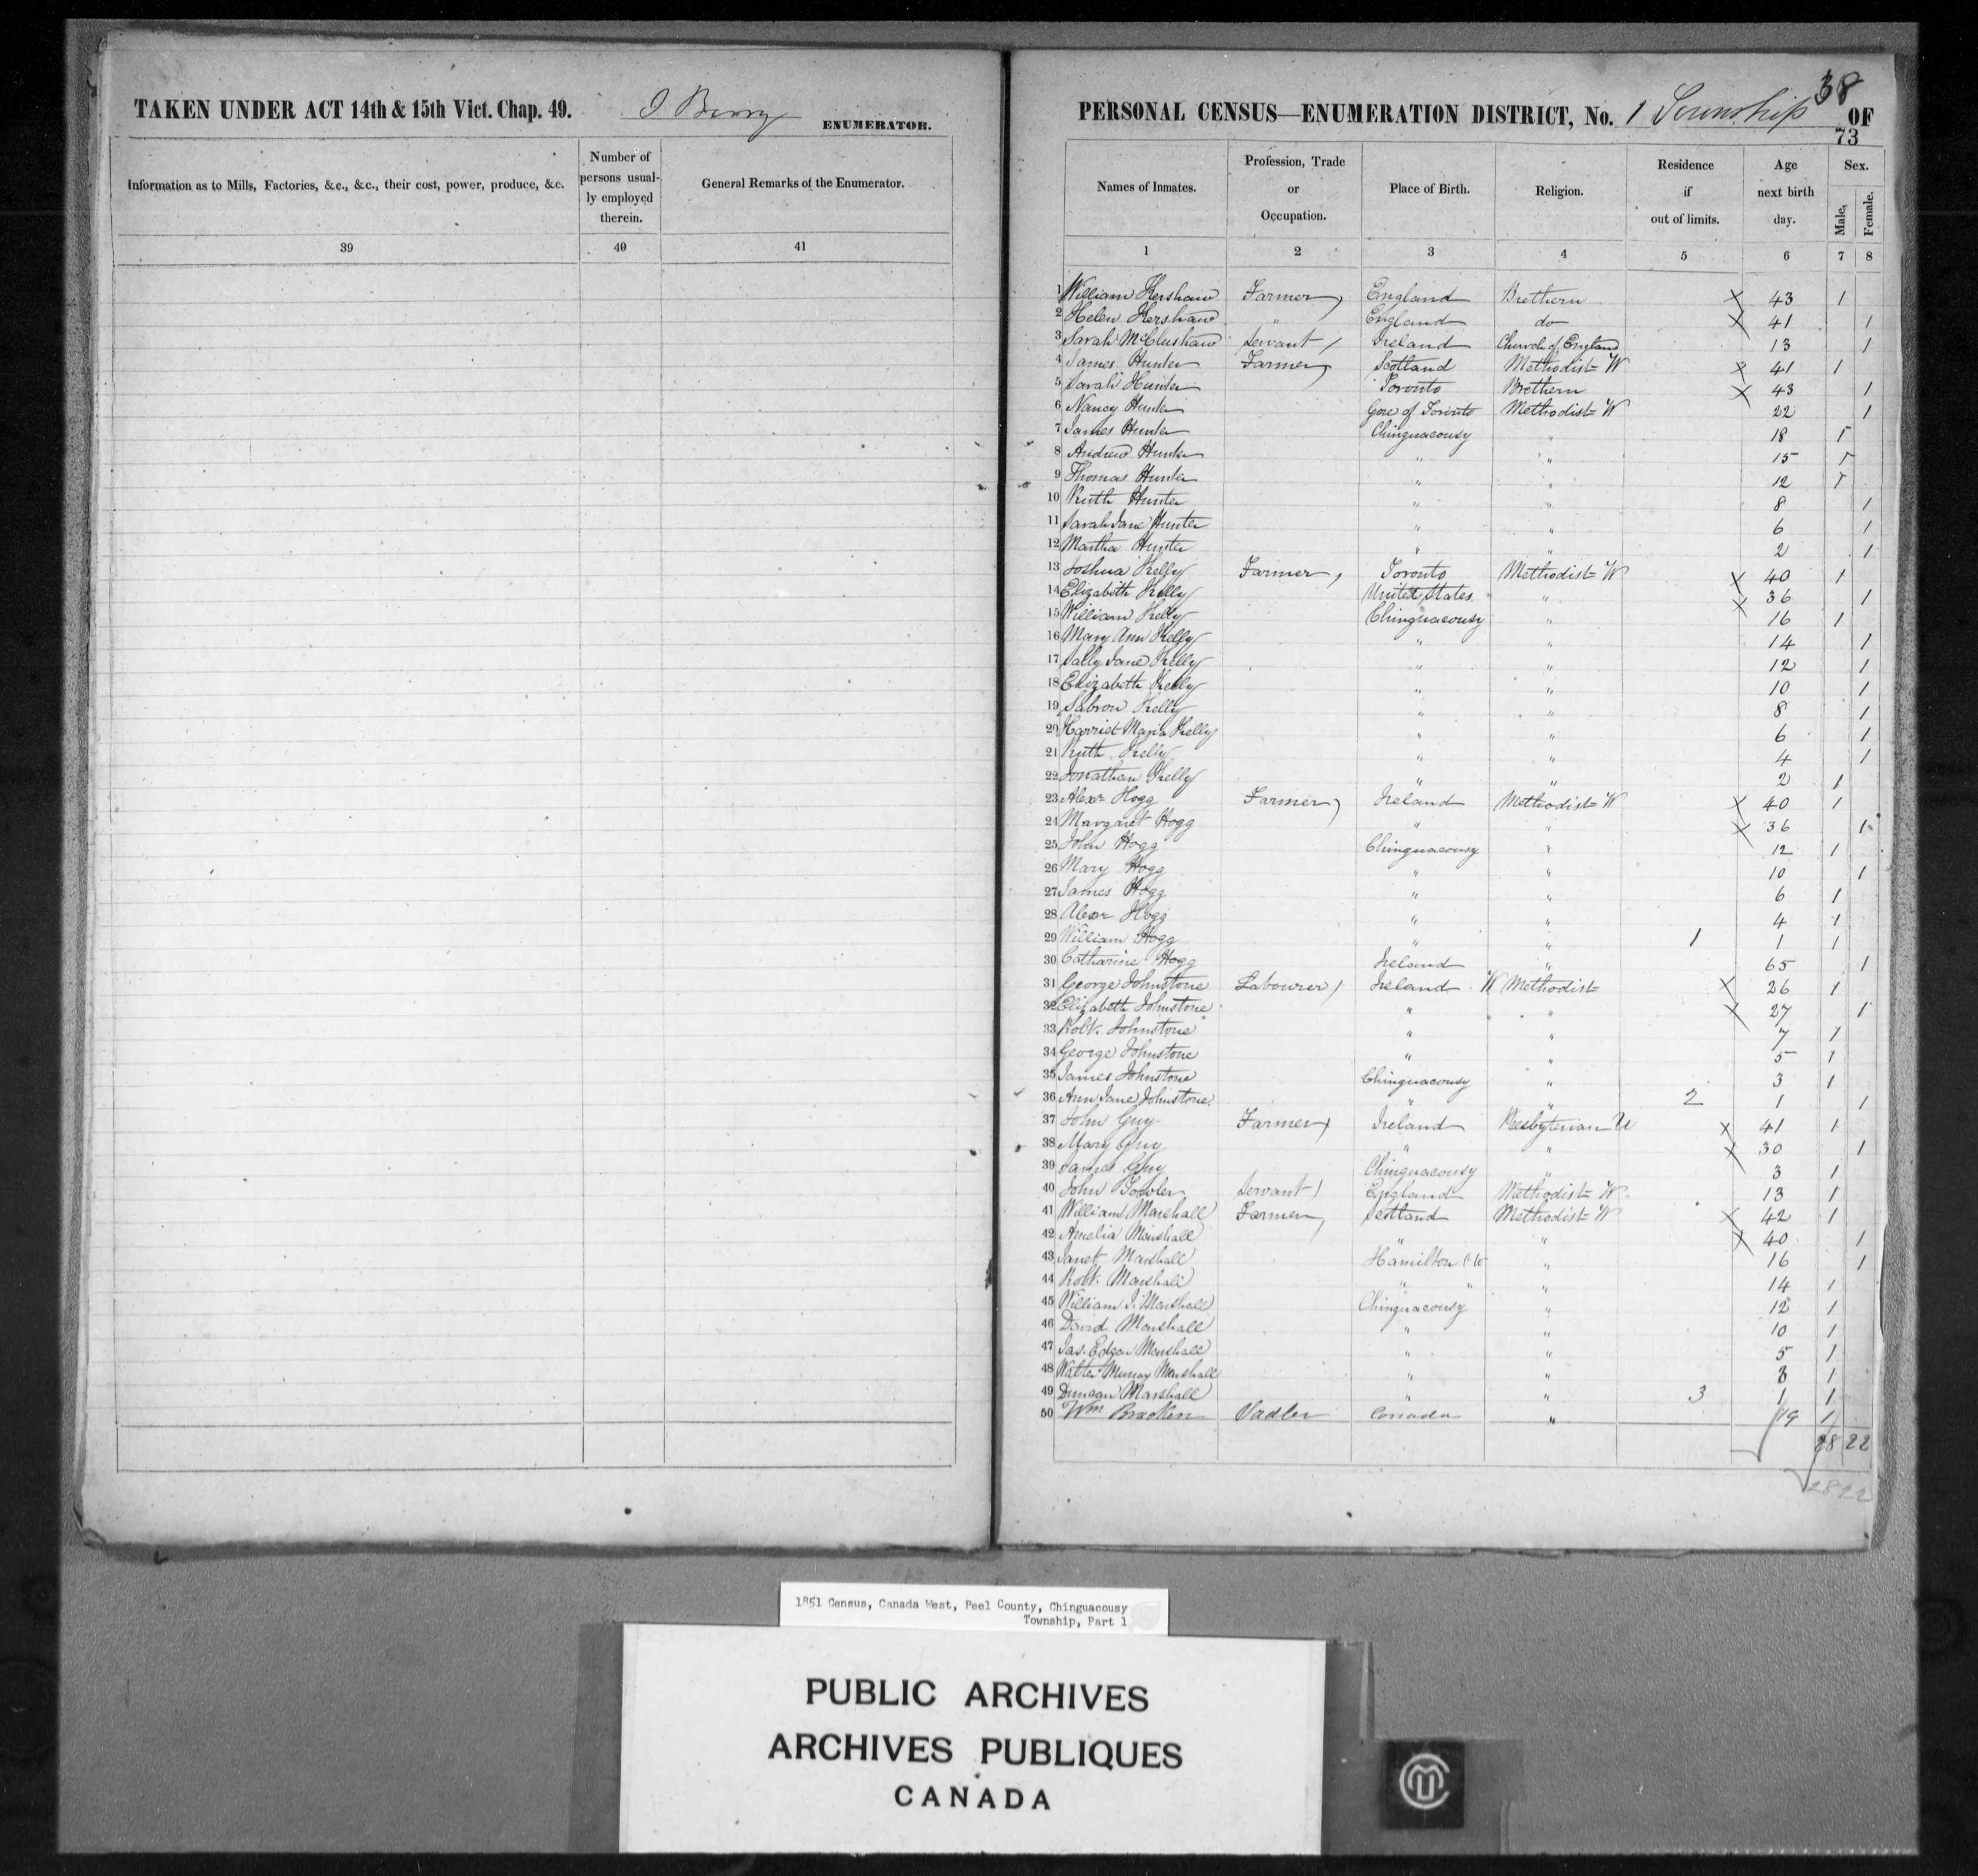 TAKEN UNDER ACT 14th & 15th Vict. Chap. 49. J Berry ENUMERATOR.
Information as to Mills, Factories, &c., &c., their cost, power, produce, &c.
Number of persons usual-
ly employed
therein.
General Remarks of the Enumerator.
39 40 41
38
PERSONAL CENSUS—ENUMERATION DISTRICT, No. 1 Township OF
73
Names of Inmates. Profession, Trade or Occupation. Place of Birth. Religion. Residence if out of limits. Age next birth day. Sex. Male, Female.
1 2 3 4 5 6 7 8
1 William Kershaw Farmer, England Brethern X 43 1
2 Helen Kershaw " England do X 41 1
3 Sarah Servant / Ireland Church of England 13 1
4 James Hunter Farmer, Scotland Methodist W X 41 1
5 Sarah Hunter Toronto Brethern X 43 1
6 Nancy Hunter Gore of Toronto Methodist W 22 1
7 James Hunter Chinguacousy " 18 1
8 Andrew Hunter " " 15 1
9 Thomas Hunter " " 12 1
10 Ruth Hunter " " 8 1
11 Sarah Jane Hunter " " 6 1
12 Martha Hunter " " 2 1
13 Joshua Kelly Farmer, Toronto Methodist W X 40 1
14 Elizabeth Kelly United States " X 36 1
15 William Kelly Chinguacousy " 16 1
16 Mary Ann Kelly " " 14 1
17 Sally Jane Kelly " " 12 1
18 Elizabeth Kelly " " 10 1
19 Kelly " " 8 1
20 Harriet Maria Kelly " " 6 1
21 Ruth Kelly " " 4 1
22 Jonathan Kelly " " 2 1
23 Alexr Hogg Farmer, Ireland Methodist W X 40 1
24 Margaret Hogg " " X 36 1
25 John Hogg Chinguacousy " 12 1
26 Mary Hogg " " 10 1
27 James Hogg " " 6 1
28 Alexr Hogg " " 4 1
29 William Hogg " " 1 1 1
30 Catharine Hogg Ireland " 65 1
31 George Johnstone Labourer / Ireland W Methodist X 26 1
32 Elizabeth Johnstone " " X 27 1
33 Robt. Johnstone " " 7 1
34 George Johnstone " " 5 1
35 James Johnstone Chinguacousy " 3 1
36 Ann Jane Johnstone " " 2 1 1
37 John Guy Farmer, Ireland Presbyterian U X 41 1
38 Mary Guy " " X 30 1
39 James Guy Chinguacousy " 3 1
40 John Servant / England Methodist W 13 1
41 William Marshall Farmer, Scotland Methodist W X 42 1
42 Amelia Marshall " " X 40 1
43 Janet Marshall Hamilton CW " 16 1
44 Robt. Marshall " " " 14 1
45 William J. Marshall Chinguacousy " 12 1
46 David Marshall " " 10 1
47 Jas. Marshall " " 5 1
48 Walter Murray Marshall " " 3 1
49 Duncan Marshall " " 3 1 1
50 Wm Bracken Sadler Canada " 19 1
28 22
28 22
1851 Census, Canada West, Peel County, Chinguacousy
Township, Part 1
PUBLIC ARCHIVES
ARCHIVES PUBLIQUES
CANADA